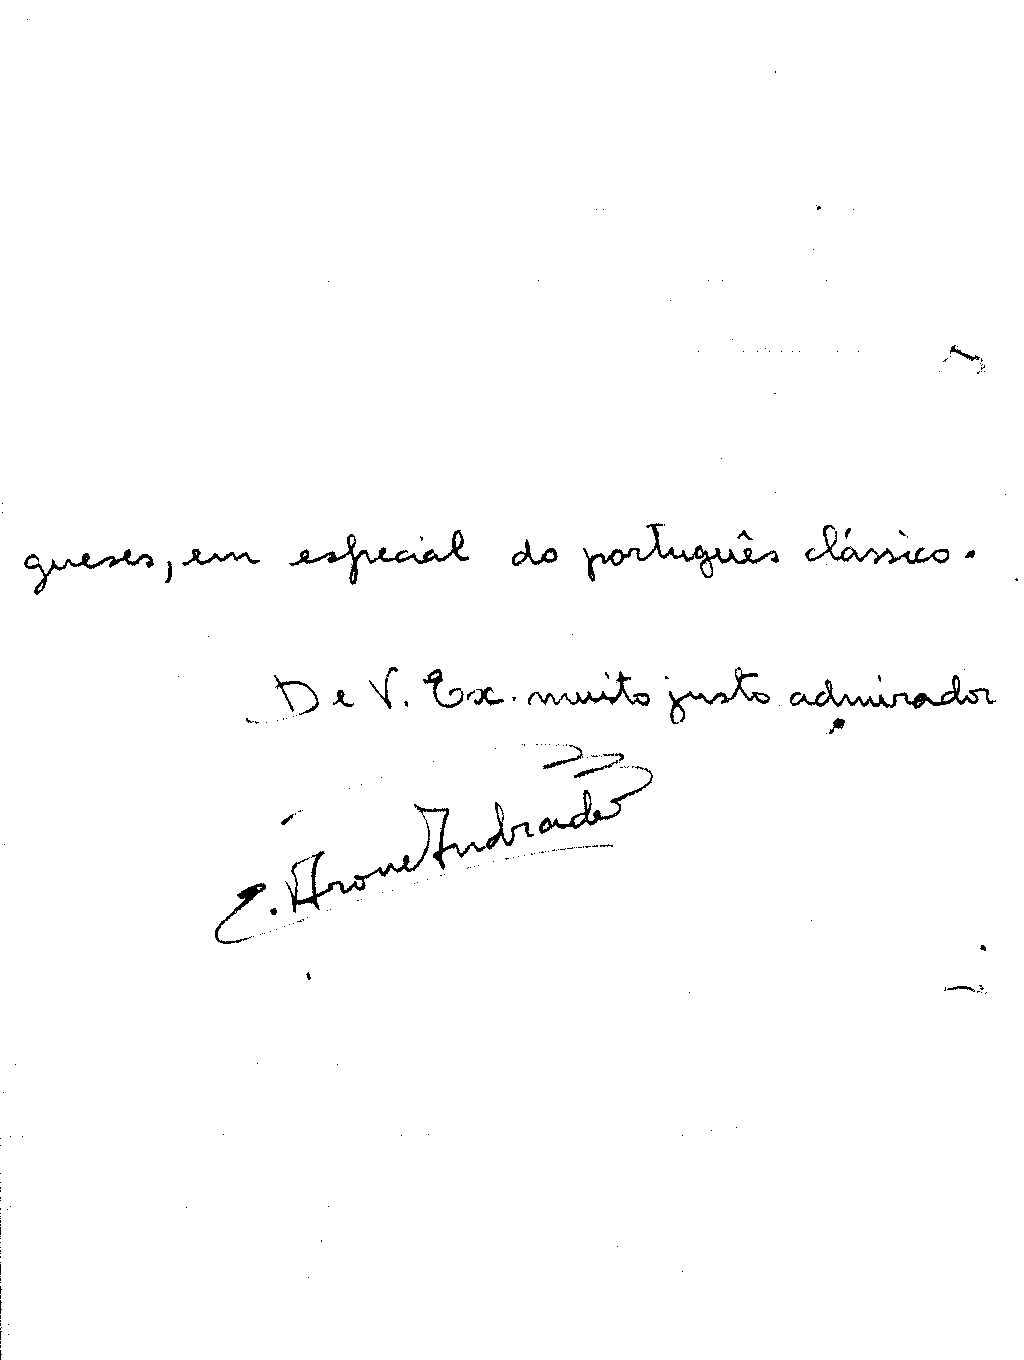 gueses, em especial do português clássico.
De V. Ex. muito justo admirador
E. Arone Andrade